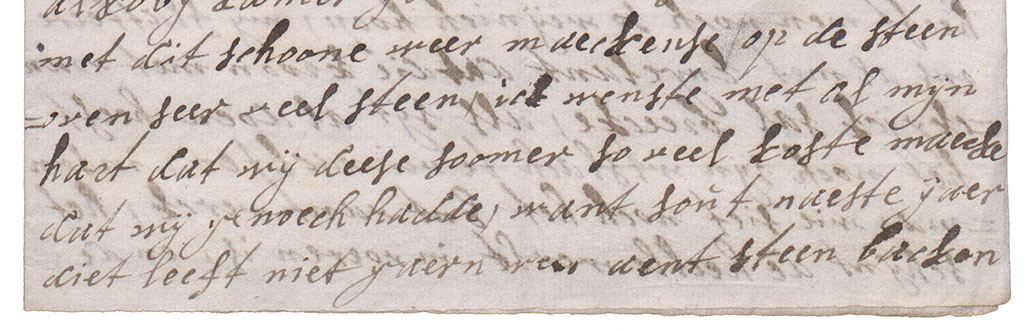 met dit schoone weer maeckense op de steen
=oven seer veel steen, ick wenste met al mijn
hart dat wij deese soomer so veel koste maecke
dat wij genoech hadde, want sout naeste yaer
diet leeft niet gaern weer aent steen backen